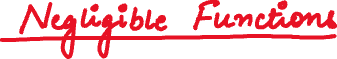 Negligible Functions